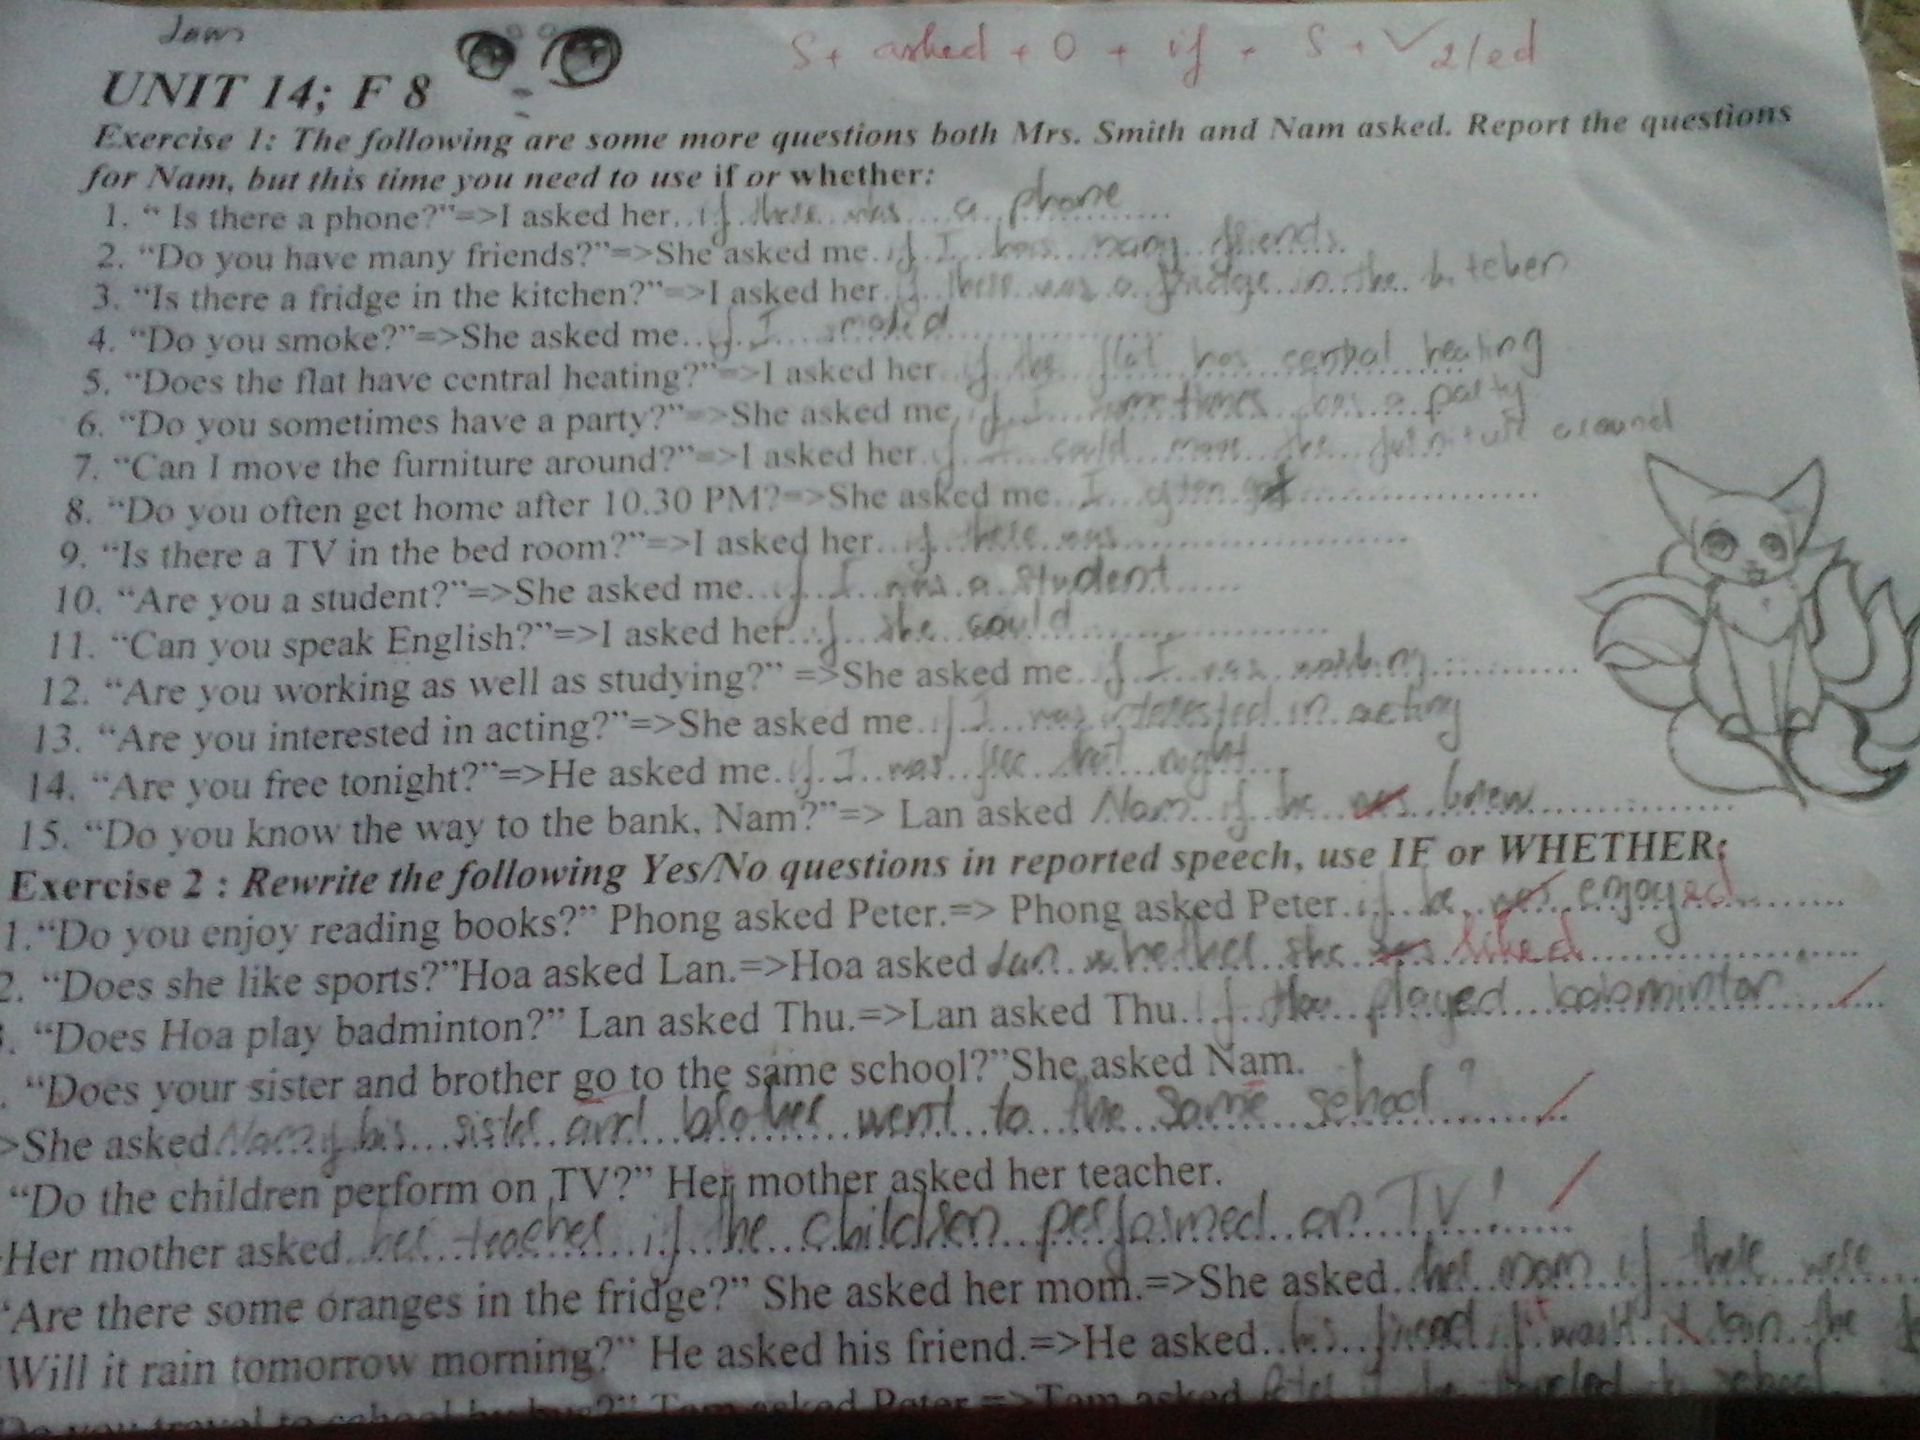 S + asked + O + if + S + V2/ed
UNIT 14; F 8
Exercise 1: The following are some more questions both Mrs. Smith and Nam asked. Report the questions
for Nam, but this time you need to use if or whether:
1. “ Is there a phone?”=>I asked her..if there was a phone
2. “Do you have many friends?”=>She asked me if I has many friends.
3. “Is there a fridge in the kitchen?”=>I asked her if there was a fridge in the kitchen
4. “Do you smoke?”=>She asked me..if I smoked
5. “Does the flat have central heating?”=>I asked her if the flat has central heating
6. “Do you sometimes have a party?”=>She asked me, if I sometimes has a party
7. “Can I move the furniture around?”=>I asked her if I could move the furniture around
8. “Do you often get home after 10.30 PM?=>She asked me...I often got
9. “Is there a TV in the bed room?”=>I asked her..if there was
10. “Are you a student?”=>She asked me...if I was a student
11. “Can you speak English?”=>I asked her..if she could
12. “Are you working as well as studying?” =>She asked me..if I was working
13. “Are you interested in acting?”=>She asked me..if I was interested in acting
14. “Are you free tonight?”=>He asked me..if I was free that night
15. “Do you know the way to the bank, Nam?”=> Lan asked Nam if he was knew
Exercise 2 : Rewrite the following Yes/No questions in reported speech, use IF or WHETHER:
1.“Do you enjoy reading books?” Phong asked Peter.=> Phong asked Peter..if he was enjoyed
2. “Does she like sports?”Hoa asked Lan.=>Hoa asked Lan whether she liked
. “Does Hoa play badminton?” Lan asked Thu.=>Lan asked Thu..if played
. “Does your sister and brother go to the same school?”She asked Nam.
>She asked Nam if his sister and brother went to the same school?
“Do the children perform on TV?” Her mother asked her teacher.
Her mother asked her teacher if the children performed on TV
“Are there some oranges in the fridge?” She asked her mom.=>She asked..her mom if there were
Will it rain tomorrow morning?” He asked his friend.=>He asked..his friend if it the
Do you travel to school by bus?” Tom asked Peter.=>Tom asked Peter if he traveled to school